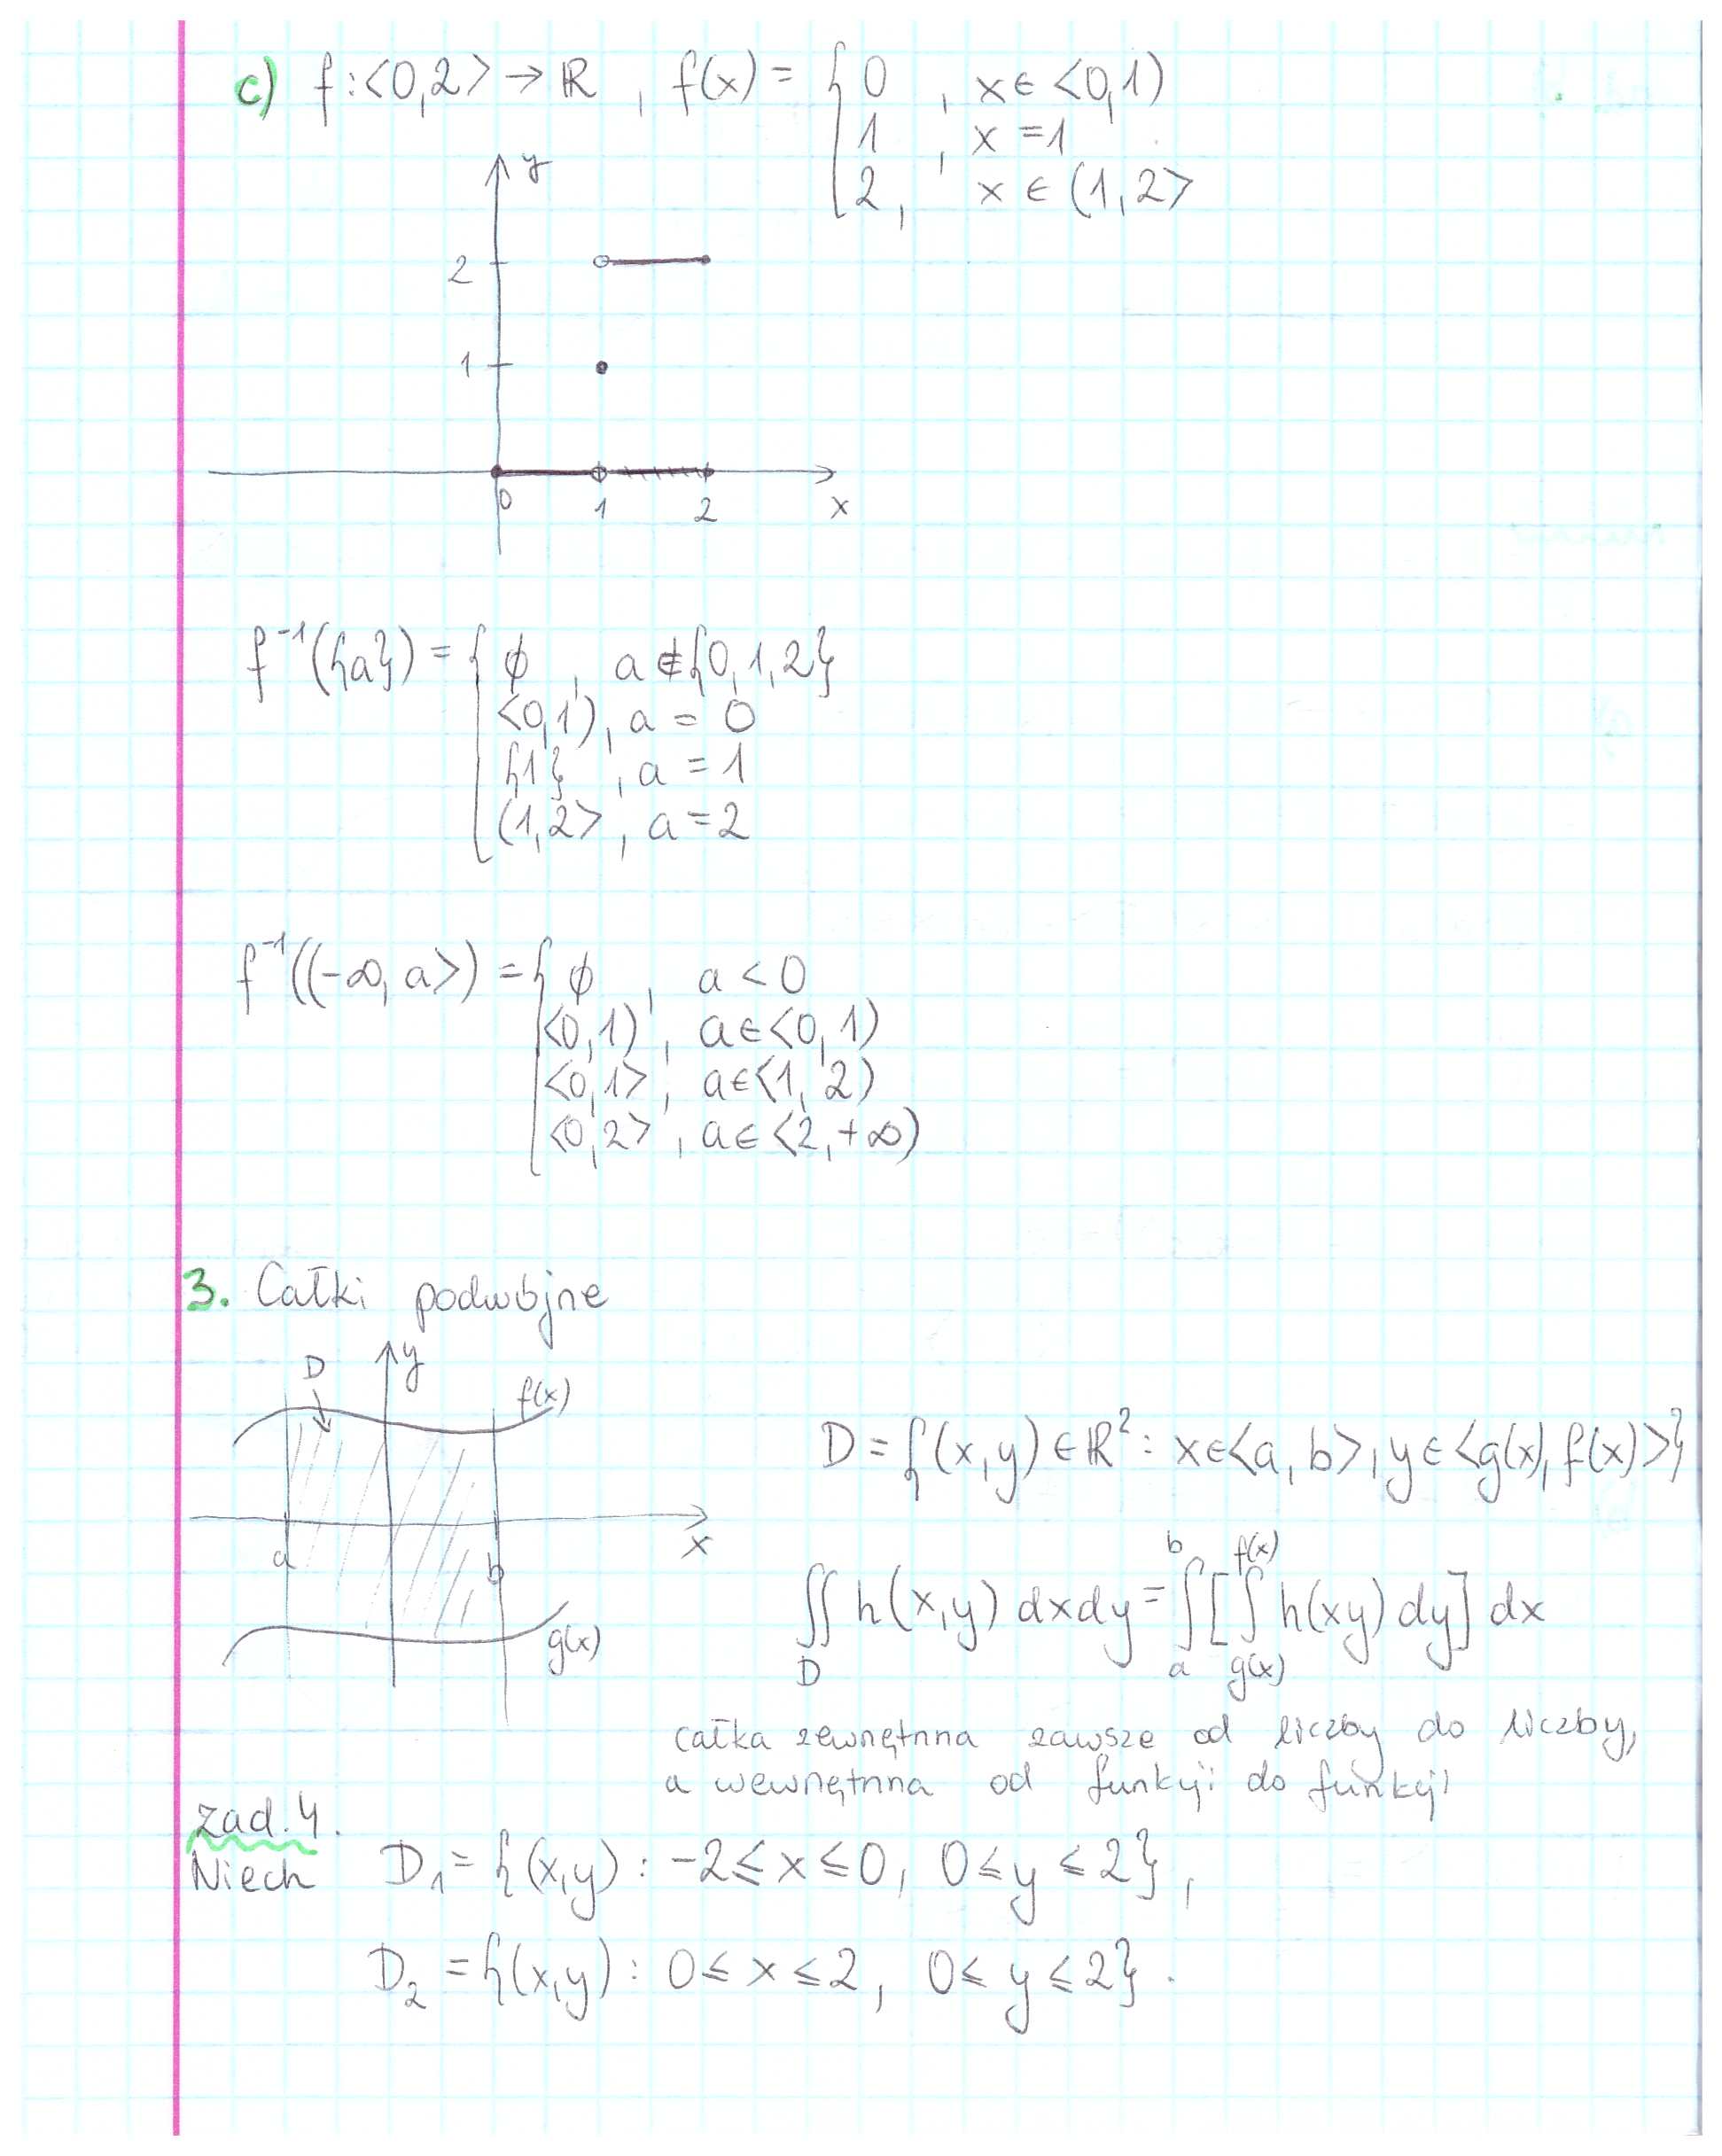 c) f:<0,2> → ℝ , f(x) = { 0 , x ∈ <0,1)
1 , x = 1
2, x ∈ (1,2>
y
2
1
0 1 2 x
f⁻¹({a}) = { ∅ , a ∉ {0,1,2}
<0,1), a = 0
{1} , a = 1
(1,2> , a = 2
f⁻¹((-∞, a>) = { ∅ , a < 0
<0,1) , a ∈ <0,1)
<0,1> , a ∈ <1,2)
<0,2> , a ∈ <2,+∞)
3. Całki podwójne
D y f(x)
D = {(x,y) ∈ ℝ² : x∈<a,b>, y∈<g(x), f(x)>}
a b x
g(x)
∬_D h(x,y) dxdy = ∫_a^b [∫_{g(x)}^{f(x)} h(xy) dy] dx
całka zewnętrzna zawsze od liczby do liczby,
a wewnętrzna od funkcji do funkcji
zad. 4.
Niech D₁ = {(x,y) : -2 ≤ x ≤ 0, 0 ≤ y ≤ 2},
D₂ = {(x,y) : 0 ≤ x ≤ 2, 0 ≤ y ≤ 2}.